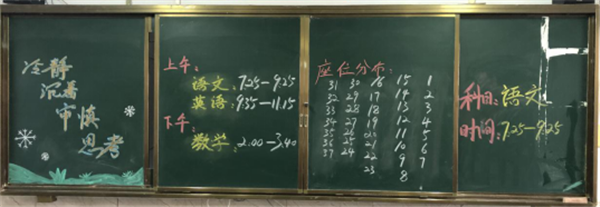 冷静
沉着
审慎
思考
上午:
语文:7:25-9:25
英语:9:35-11:15
下午:
数学:2:00-3:40
座位分布:
31 30 16 15 1
32 29 17 14 2
33 28 18 13 3
34 27 19 12 4
35 26 20 11 5
36 25 21 10 6
37 24 22 9 7
23 8
科目:语文
时间:7:25-9:25